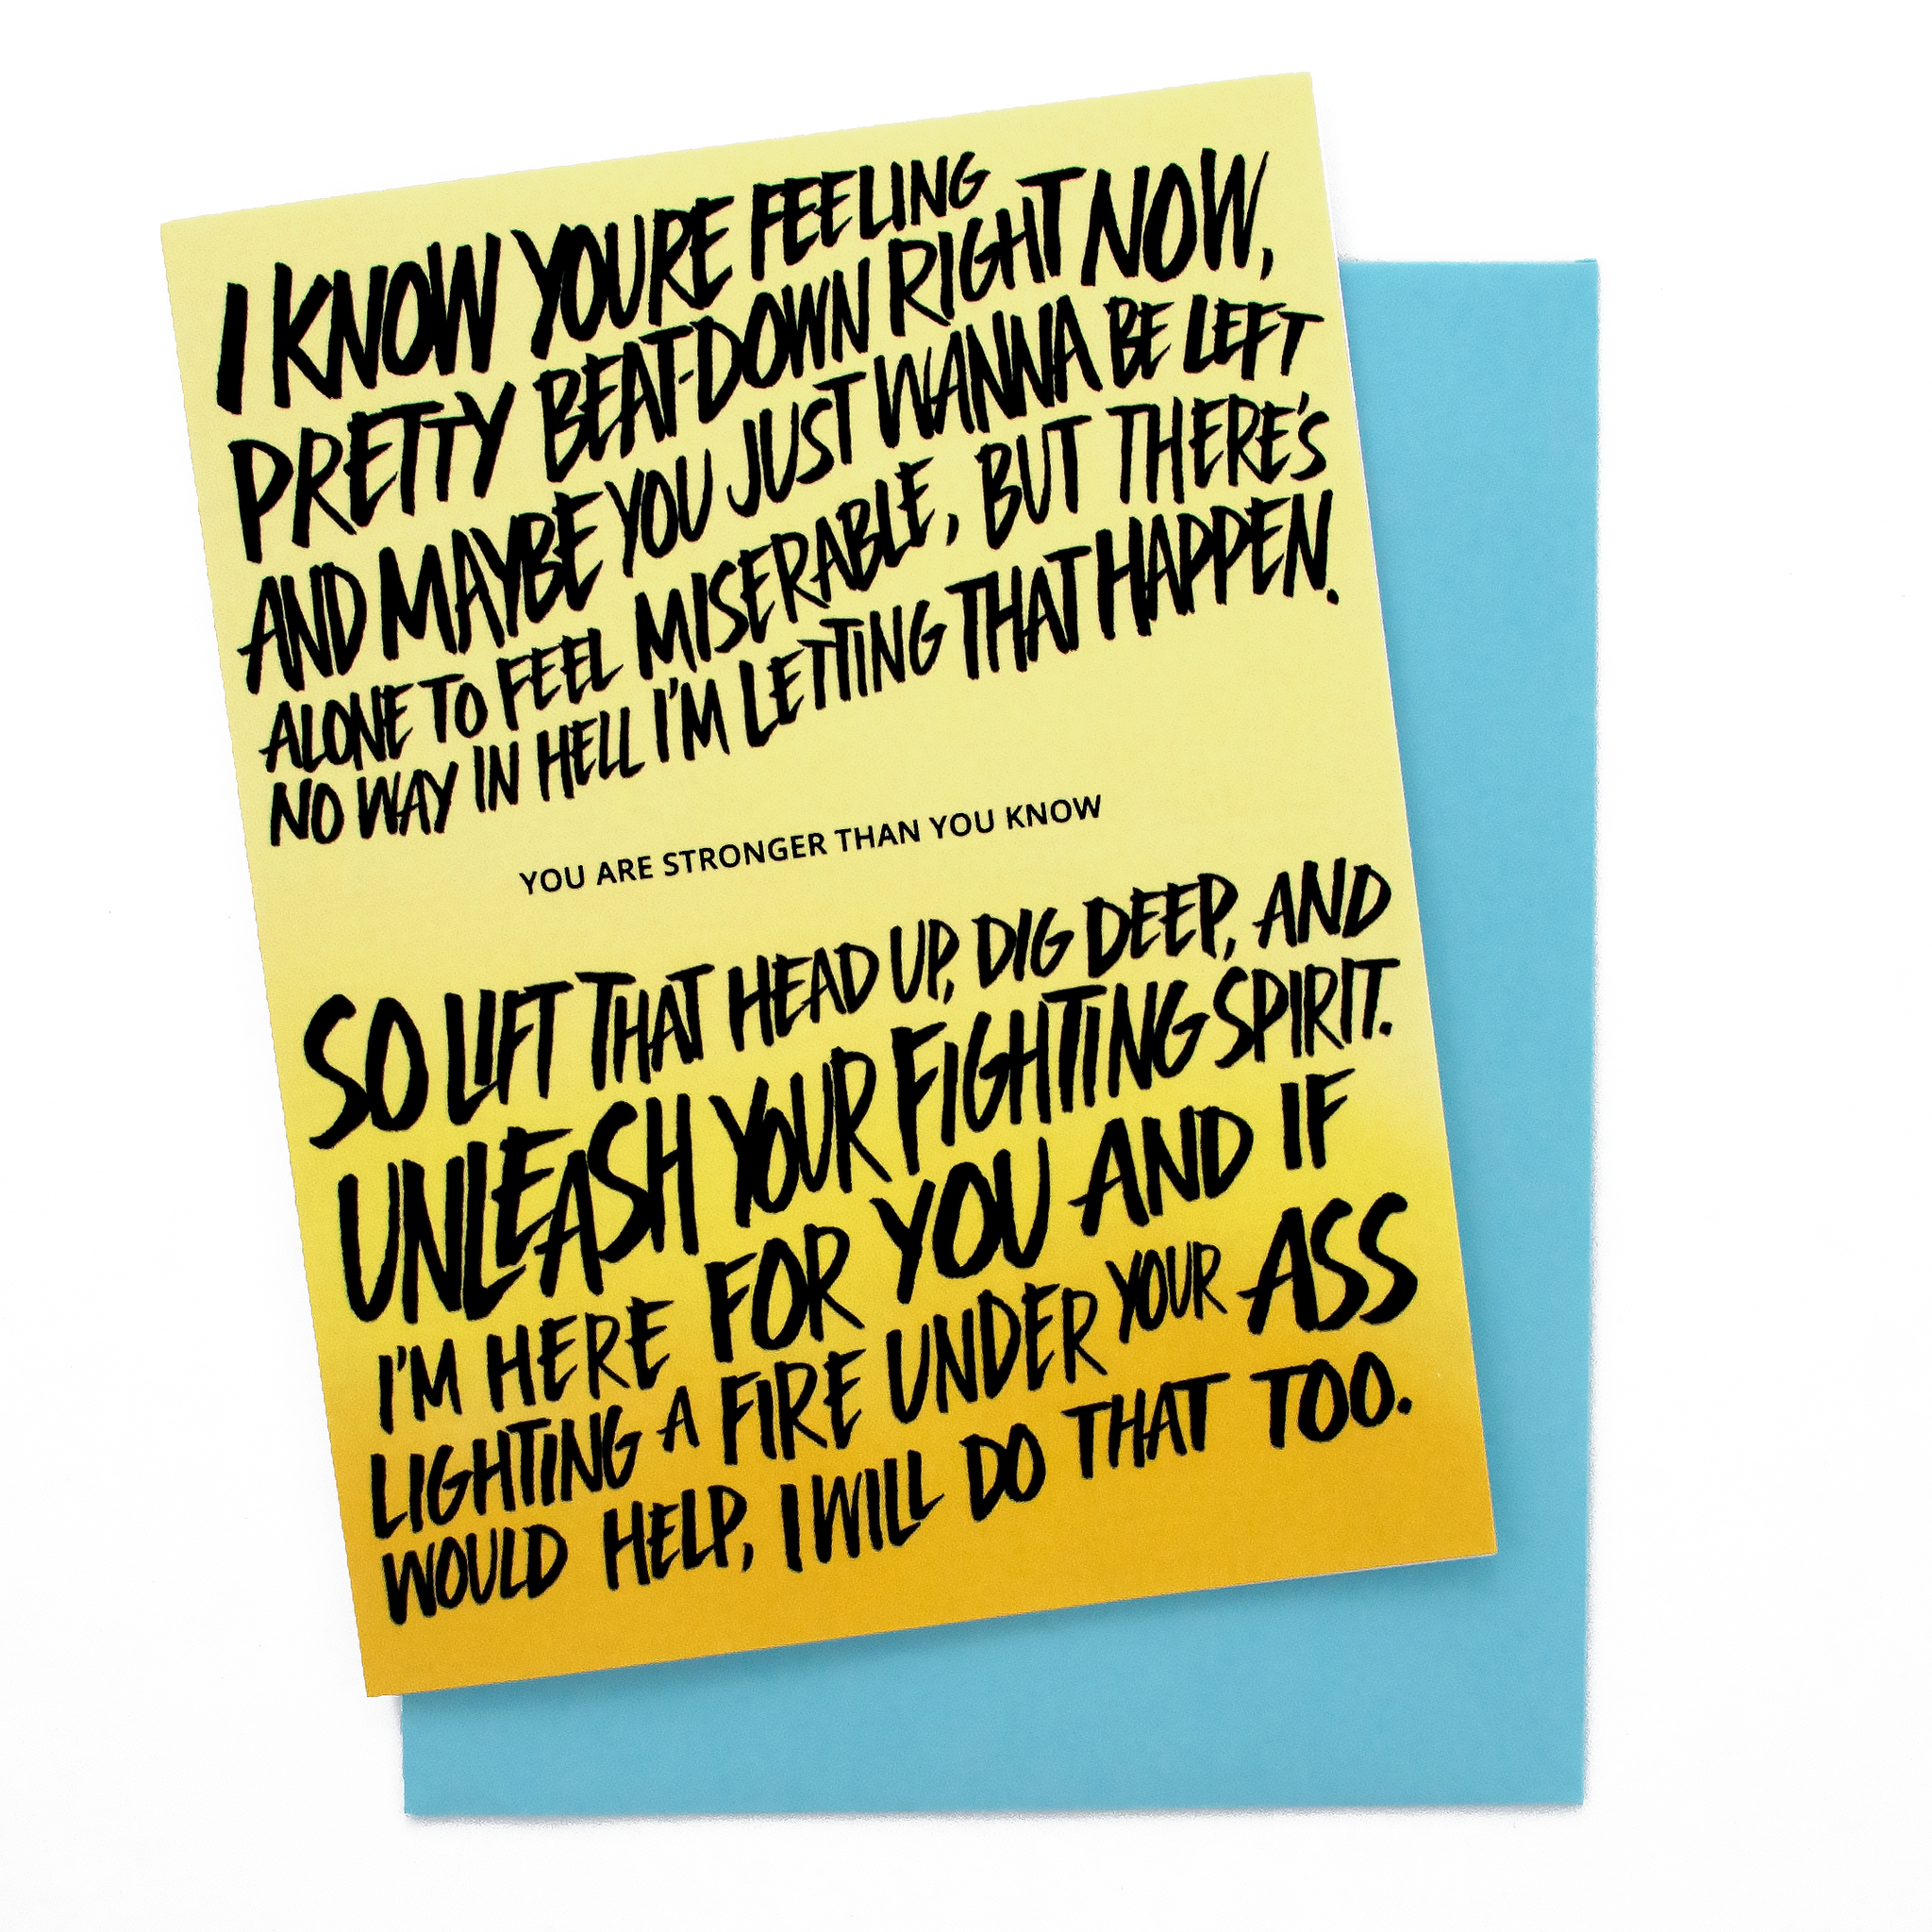 I KNOW YOURE FEELING
PRETTY BEAT-DOWN RIGHT NOW,
AND MAYBE YOU JUST WANNA BE LEFT
ALONE TO FEEL MISERABLE, BUT THERE'S
NO WAY IN HELL I'M LETTING THAT HAPPEN.
YOU ARE STRONGER THAN YOU KNOW
SO LIFT THAT HEAD UP, DIG DEEP, AND
UNLEASH YOUR FIGHTING SPIRIT.
I'M HERE FOR YOU AND IF
LIGHTING A FIRE UNDER YOUR ASS
WOULD HELP, I WILL DO THAT TOO.